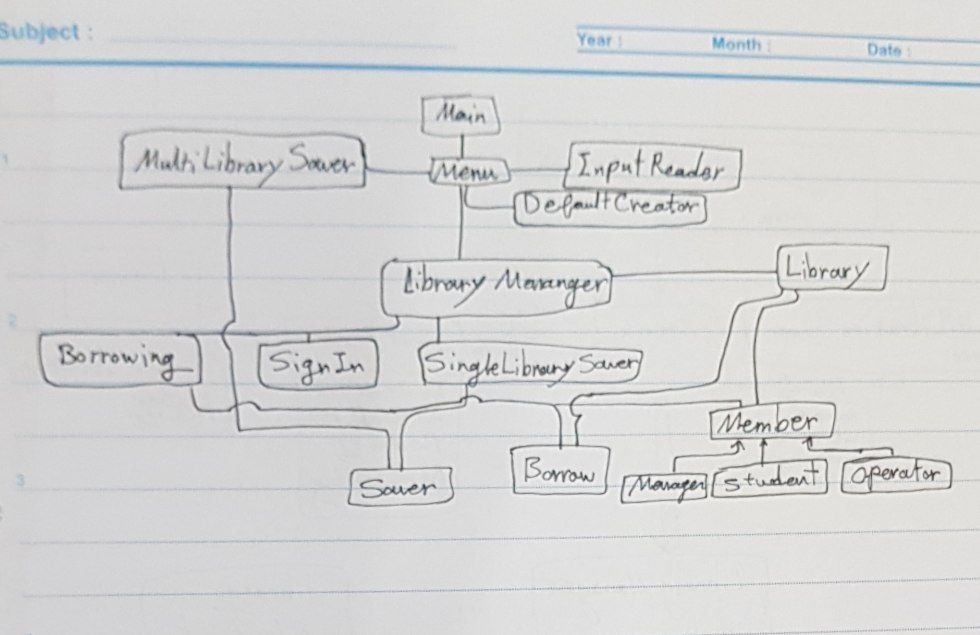 Subject :
Year :
Month :
Date :
Main
1
MultiLibrarySaver
Menu
InputReader
DefaultCreator
Library Mananger
Library
2
Borrowing
SignIn
SingleLibrarySaver
Member
3
Saver
Borrow
Manager
Student
Operator